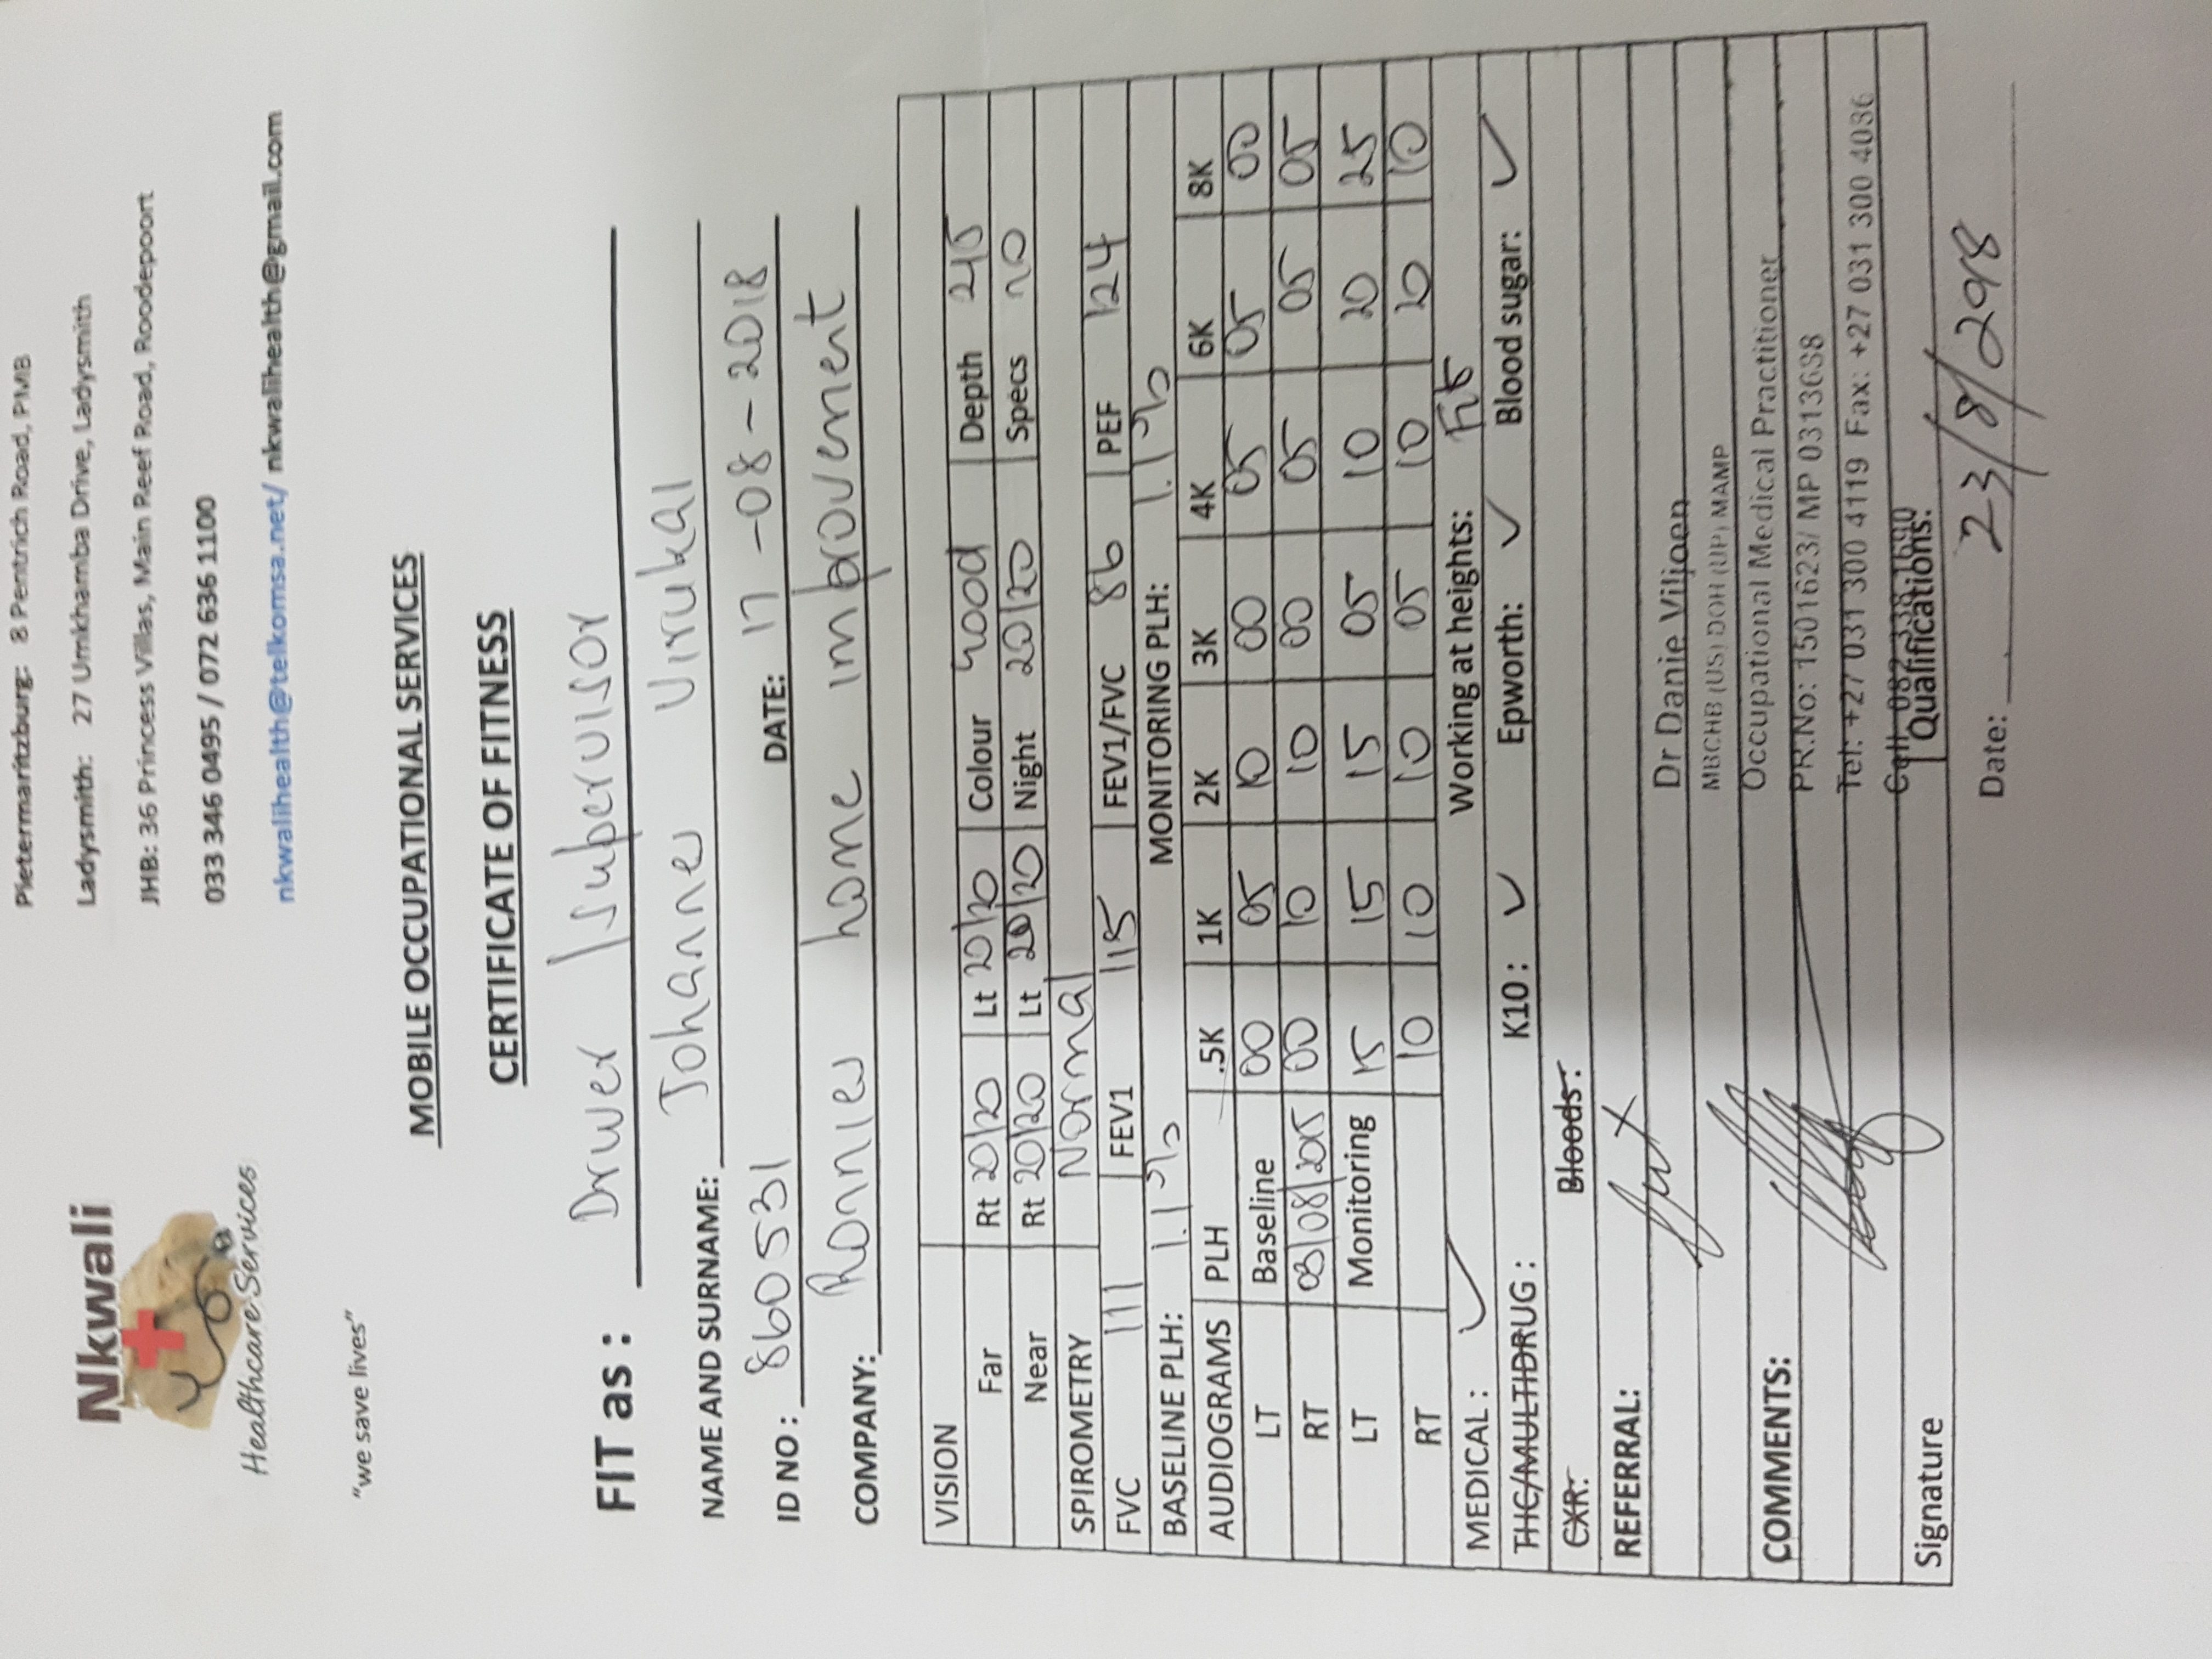 Nkwali
Healthcare Services
"we save lives"
Pietermaritzburg: 8 Pentrich Road, PMB
Ladysmith: 27 Umkhamba Drive, Ladysmith
JHB: 36 Princess Villas, Main Reef Road, Roodepoort
033 346 0495 / 072 636 1100
nkwalihealth@telkomsa.net/ nkwalihealth@gmail.com
MOBILE OCCUPATIONAL SERVICES
CERTIFICATE OF FITNESS
FIT as : Driver / Supervisor
NAME AND SURNAME: Johannes
ID NO : 860531 DATE: 17-08-2018
COMPANY: Ronnies home improvement
VISION
Far Rt 20/20 Lt 20/20 Colour Good Depth 2/5
Near Rt 20/20 Lt 20/20 Night 20/20 Specs no
SPIROMETRY Normal
FVC 111 FEV1 115 FEV1/FVC 86 PEF 124
BASELINE PLH: 1.1% MONITORING PLH: 1.1%
AUDIOGRAMS PLH .5K 1K 2K 3K 4K 6K 8K
LT Baseline 00 05 10 00 05 05 00
RT 03/08/2015 00 10 10 00 05 05 05
LT Monitoring 15 15 15 05 10 20 25
RT 10 10 10 05 10 20 10
MEDICAL : ✓ Working at heights: Fit
THC/MULTIDRUG : K10 : ✓ Epworth: ✓ Blood sugar: ✓
CXR: Bloods:
REFERRAL:
Dr Danie Viljoen
MBCHB (US) DOH (UP) MAMP
COMMENTS: Occupational Medical Practitioner
PR.No: 1501623/ MP 0313688
Tel: +27 031 300 4119 Fax: +27 031 300 4036
Cell 082 338 1690
Signature Qualifications:
Date: 23/8/2018